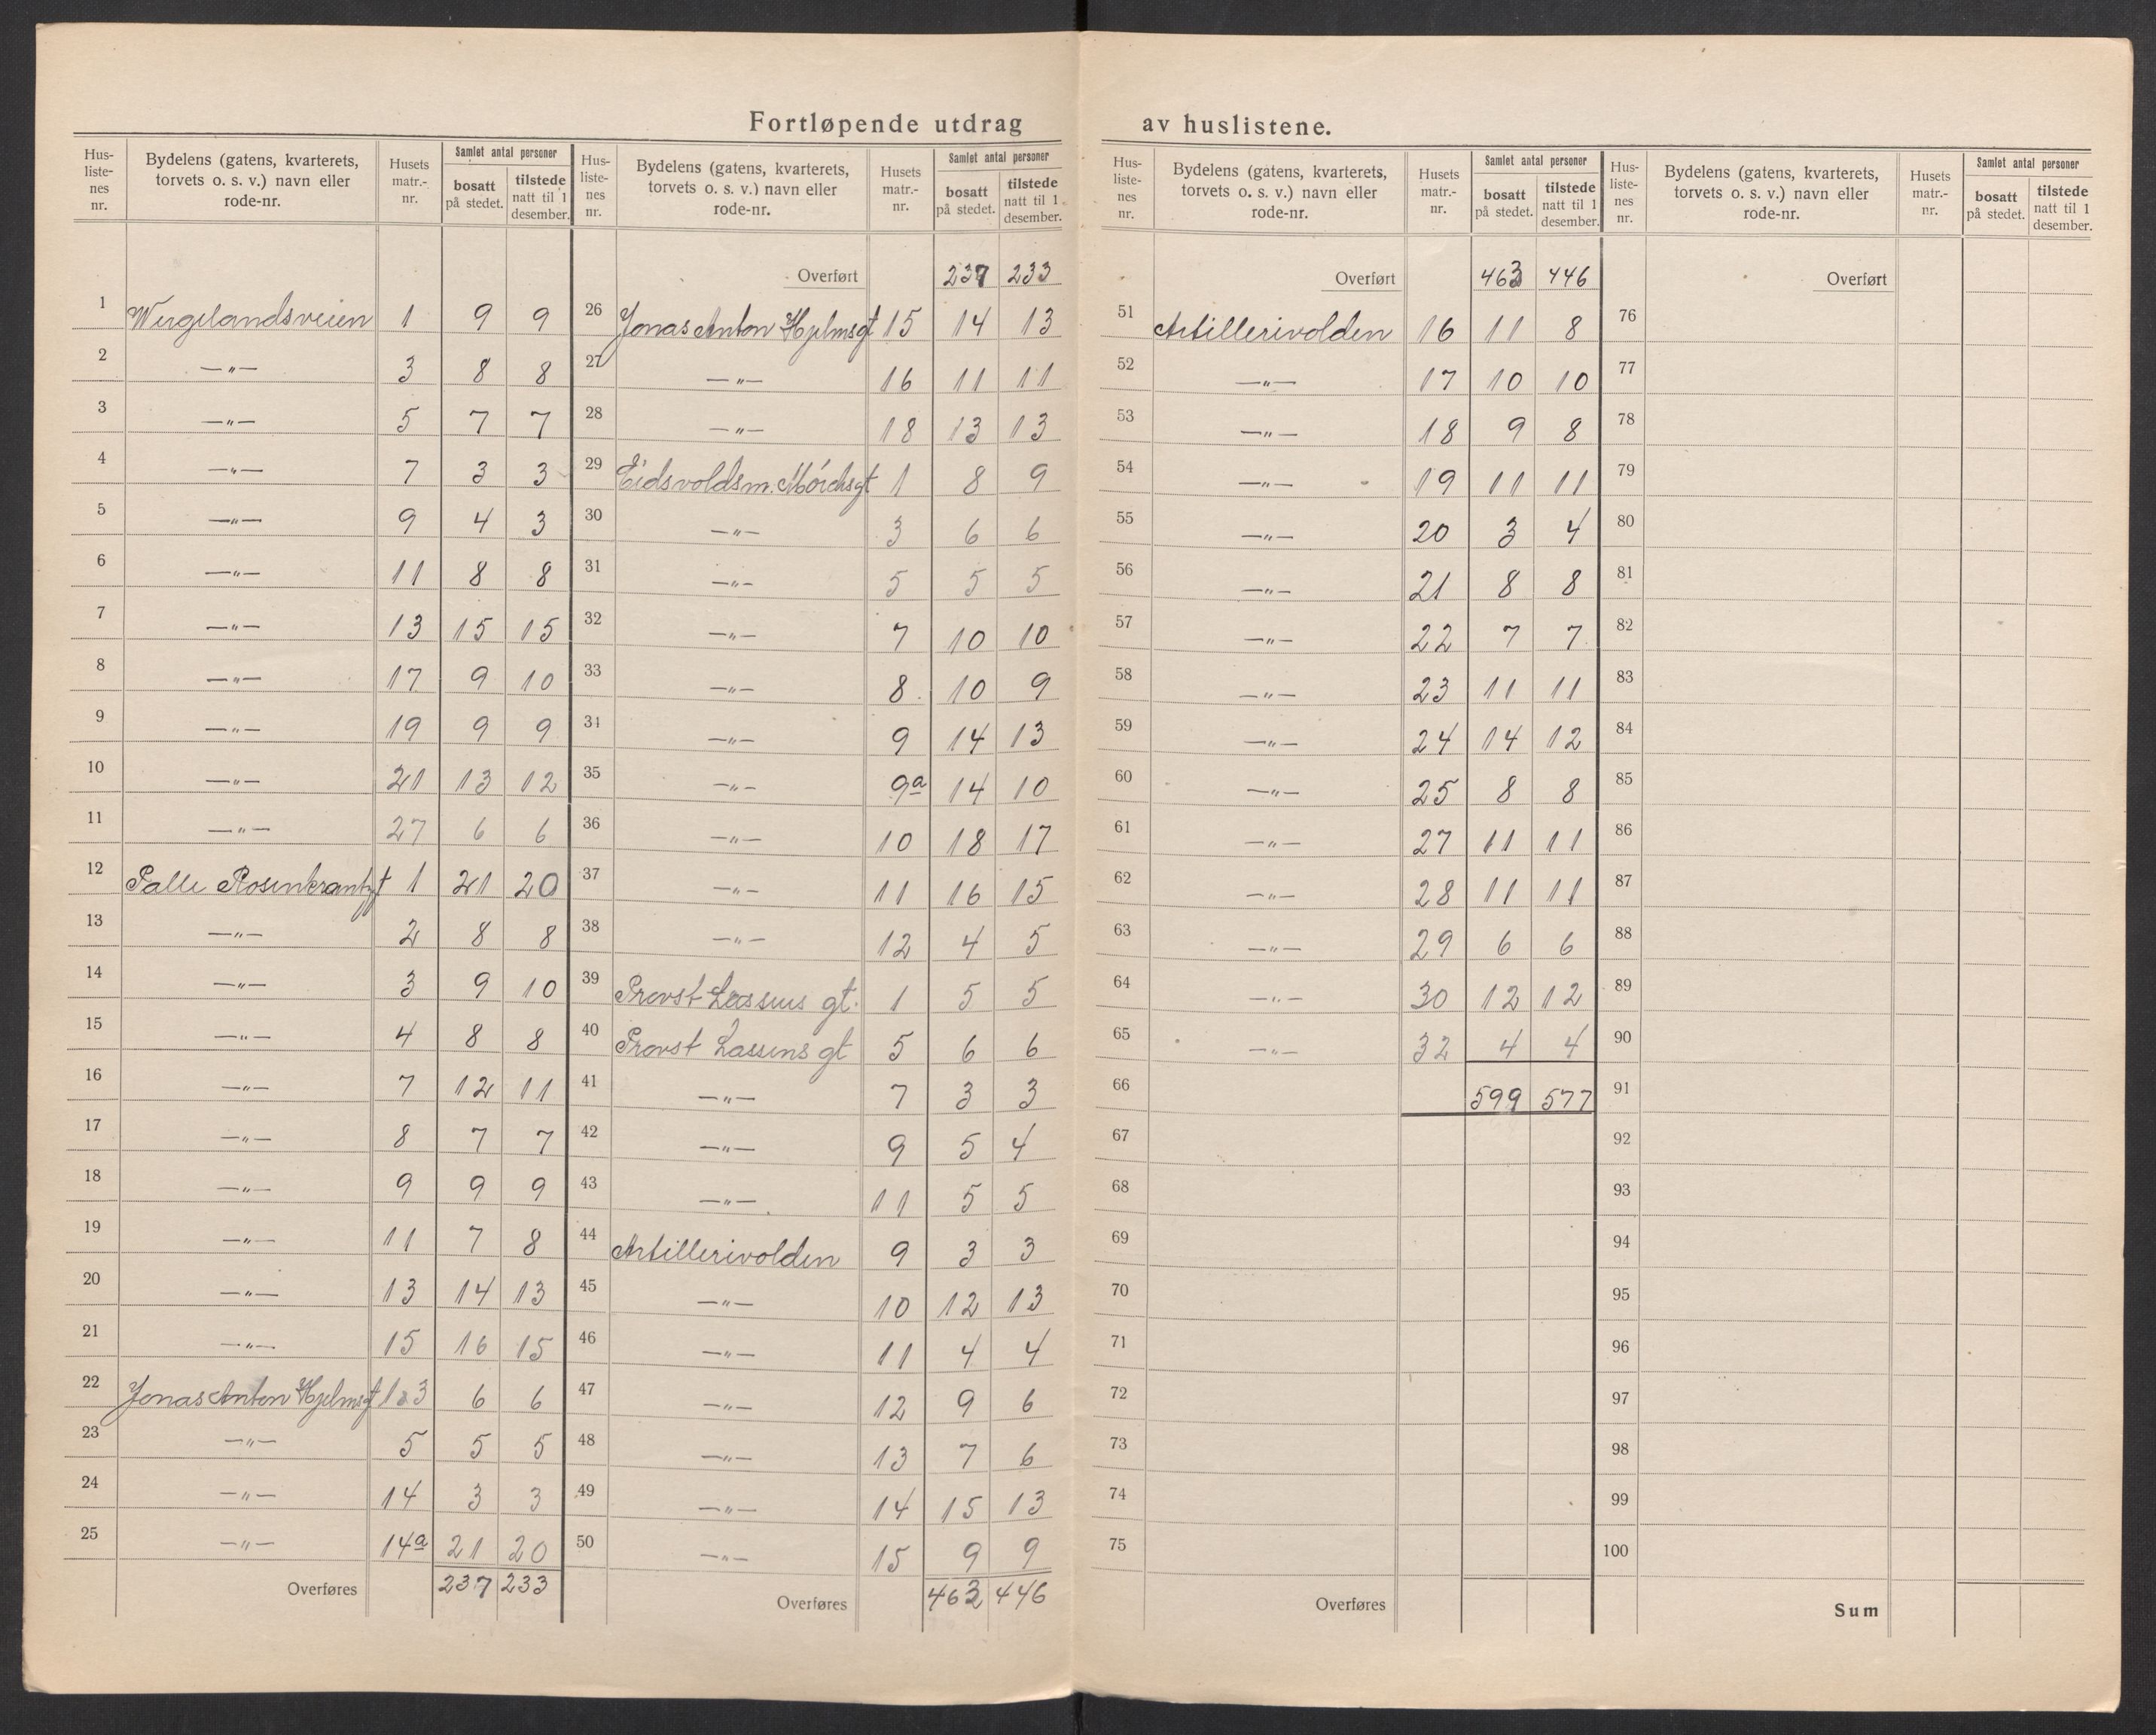 Fortløpende utdrag av huslistene.
Hus-listenes nr. | Bydelens (gatens, kvarterets, torvets o. s. v.) navn eller rode-nr. | Husets matr.-nr. | Samlet antal personer | bosatt på stedet. | tilstede natt til 1 desember.
1 Wergelandsveien 1 9 9
2 —"— 3 8 8
3 —"— 5 7 7
4 —"— 7 3 3
5 —"— 9 4 3
6 —"— 11 8 8
7 —"— 13 15 15
8 —"— 17 9 10
9 —"— 19 9 9
10 —"— 21 13 12
11 —"— 27 6 6
12 Palle Rosenkrantzgt 1 21 20
13 —"— 2 8 8
14 —"— 3 9 10
15 —"— 4 8 8
16 —"— 7 12 11
17 —"— 8 7 7
18 —"— 9 9 9
19 —"— 11 7 8
20 —"— 13 14 13
21 —"— 15 16 15
22 Jonas Anton Hjelmsgt 1a3 6 6
23 —"— 5 5 5
24 —"— 14 3 3
25 —"— 14a 21 20
Overføres 237 233
Hus-listenes nr. | Bydelens (gatens, kvarterets, torvets o. s. v.) navn eller rode-nr. | Husets matr.-nr. | Samlet antal personer | bosatt på stedet. | tilstede natt til 1 desember.
Overført 237 233
26 Jonas Anton Hjelmsgt 15 14 13
27 —"— 16 11 11
28 —"— 18 13 13
29 Eidsvoldsm. Mórchsgt 1 8 9
30 —"— 3 6 6
31 —"— 5 5 5
32 —"— 7 10 10
33 —"— 8 10 9
34 —"— 9 14 13
35 —"— 9a 14 10
36 —"— 10 18 17
37 —"— 11 16 15
38 —"— 12 4 5
39 Provst Lassens gt. 1 5 5
40 Provst Lassens gt 5 6 6
41 —"— 7 3 3
42 —"— 9 5 4
43 —"— 11 5 5
44 Artillerivolden 9 3 3
45 —"— 10 12 13
46 —"— 11 4 4
47 —"— 12 9 6
48 —"— 13 7 6
49 —"— 14 15 13
50 —"— 15 9 9
Overføres 463 446
Hus-listenes nr. | Bydelens (gatens, kvarterets, torvets o. s. v.) navn eller rode-nr. | Husets matr.-nr. | Samlet antal personer | bosatt på stedet. | tilstede natt til 1 desember.
Overført 463 446
51 Artillerivolden 16 11 8
52 —"— 17 10 10
53 —"— 18 9 8
54 —"— 19 11 11
55 —"— 20 3 4
56 —"— 21 8 8
57 —"— 22 7 7
58 —"— 23 11 11
59 —"— 24 14 12
60 —"— 25 8 8
61 —"— 27 11 11
62 —"— 28 11 11
63 —"— 29 6 6
64 —"— 30 12 12
65 —"— 32 4 4
66 599 577
67
68
69
70
71
72
73
74
75
Overføres
Hus-listenes nr. | Bydelens (gatens, kvarterets, torvets o. s. v.) navn eller rode-nr. | Husets matr.-nr. | Samlet antal personer | bosatt på stedet. | tilstede natt til 1 desember.
Overført
76
77
78
79
80
81
82
83
84
85
86
87
88
89
90
91
92
93
94
95
96
97
98
99
100
Sum